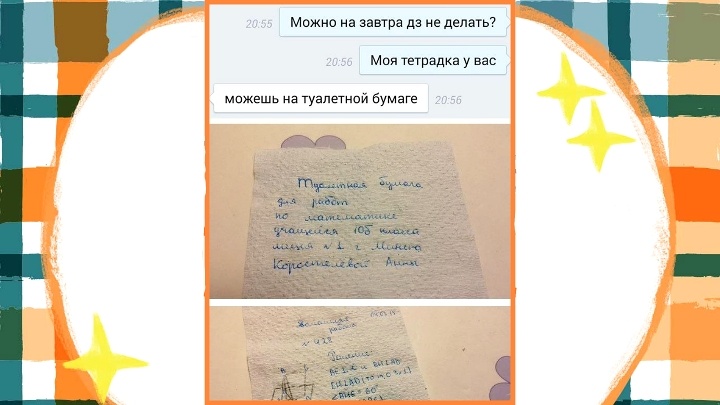 20:55 Можно на завтра дз не делать?
20:56 Моя тетрадка у вас
можешь на туалетной бумаге 20:56
Туалетная бумага
для работ
по математике
учащейся 10б класса
лицея №1 г. Минска
Коростелевой Анны
Домашняя
работа
№ 428
Решение: